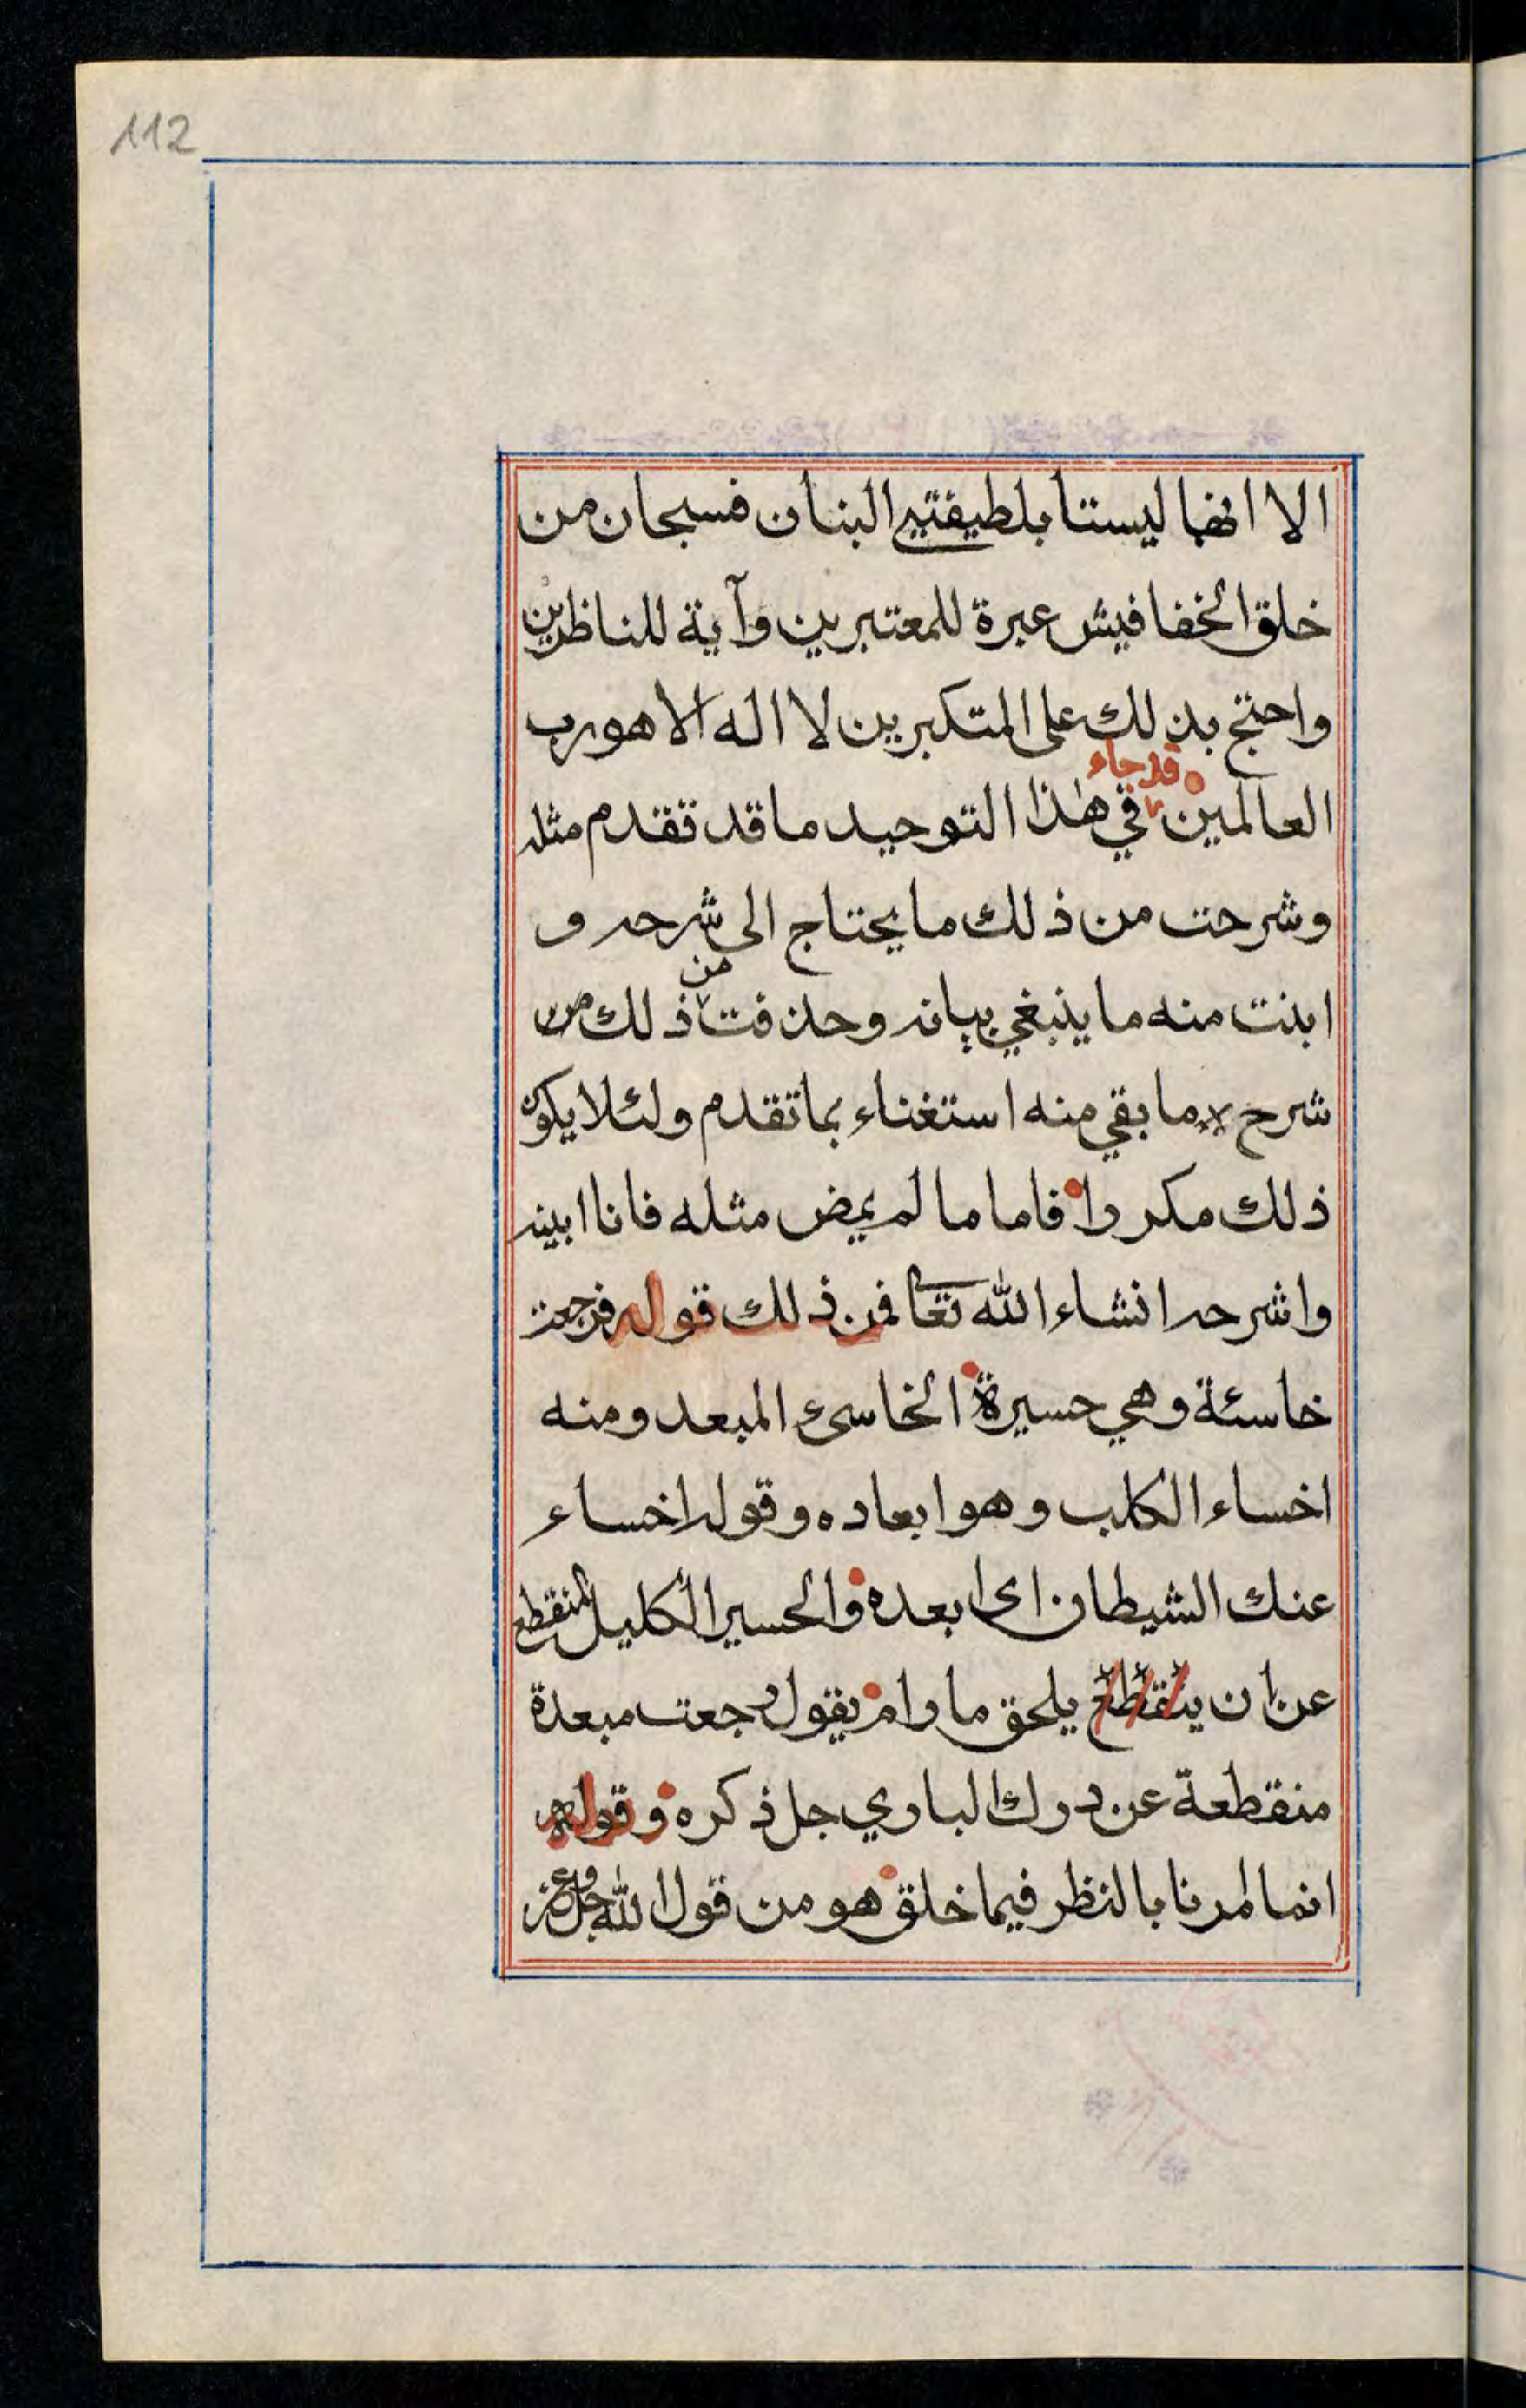 112
الا انهما ليستا بلطيفتي البنان فسبحان من
خلق الخفافيش عبرة للمعتبرين وآية للناظرين
واحتج بذلك على المتكبرين لا اله الا هو رب
العالمين قد جاء في هذا التوحيد ما قد تقدم مثله
وشرحت من ذلك ما يحتاج الى شرحه و
ابنت منه ما ينبغي بيانه وحذفت من ذلك من
شرح ما بقي منه استغناء بما تقدم ولئلا يكون
ذلك مكررا فاما ما لم يمض مثله فانا ابينه
واشرحه انشاء الله تعا فمن ذلك قوله فرجعت
خاسئة وهي حسيرة الخاسئ المبعد ومنه
اخساء الكلب وهو ابعاده وقوله اخساء
عنك الشيطان اى ابعده والحسير الكليل المنقطع
عن ان ينقطع يلحق ما رام يقول رجعت مبعدة
منقطعة عن درك الباري جل ذكره وقوله
انما امرنا بالنظر فيما خلق هو من قول الله جل وعز